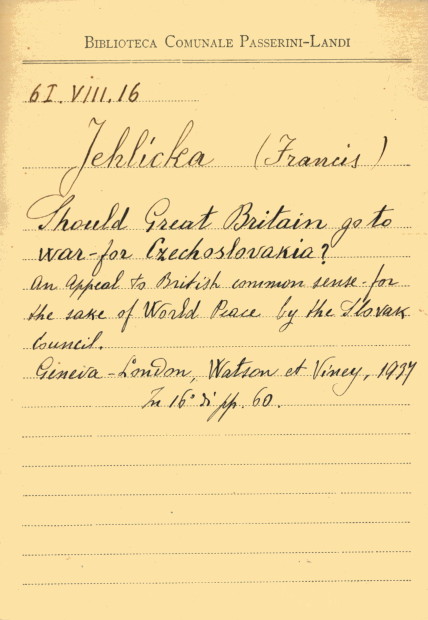 BIBLIOTECA COMUNALE PASSERINI-LANDI
6I.VIII.16
Jehlicka (Francis)
Should Great Britain go to
war for Czechoslovakia?
An Appeal to British common sense for
the sake of World Peace by the Slovak
Council.
Geneva-London, Watson et Viney, 1937
In 16° di pp. 60.